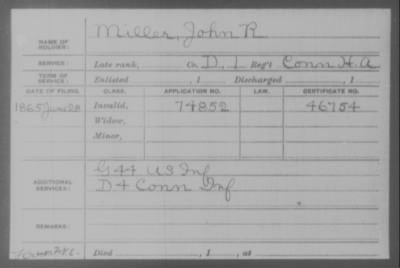 NAME OF SOLDIER: Miller, John R
SERVICE: Late rank, Co D, 1 Reg't Conn H.A
TERM OF SERVICE: Enlisted , 1 Discharged , 1
DATE OF FILING. CLASS. APPLICATION NO. LAW. CERTIFICATE NO.
1865 June 28 Invalid, 74852 46754
Widow,
Minor,
ADDITIONAL SERVICES: G 44 US Inf
D 4 Conn Inf
REMARKS:
Died , 1 , at